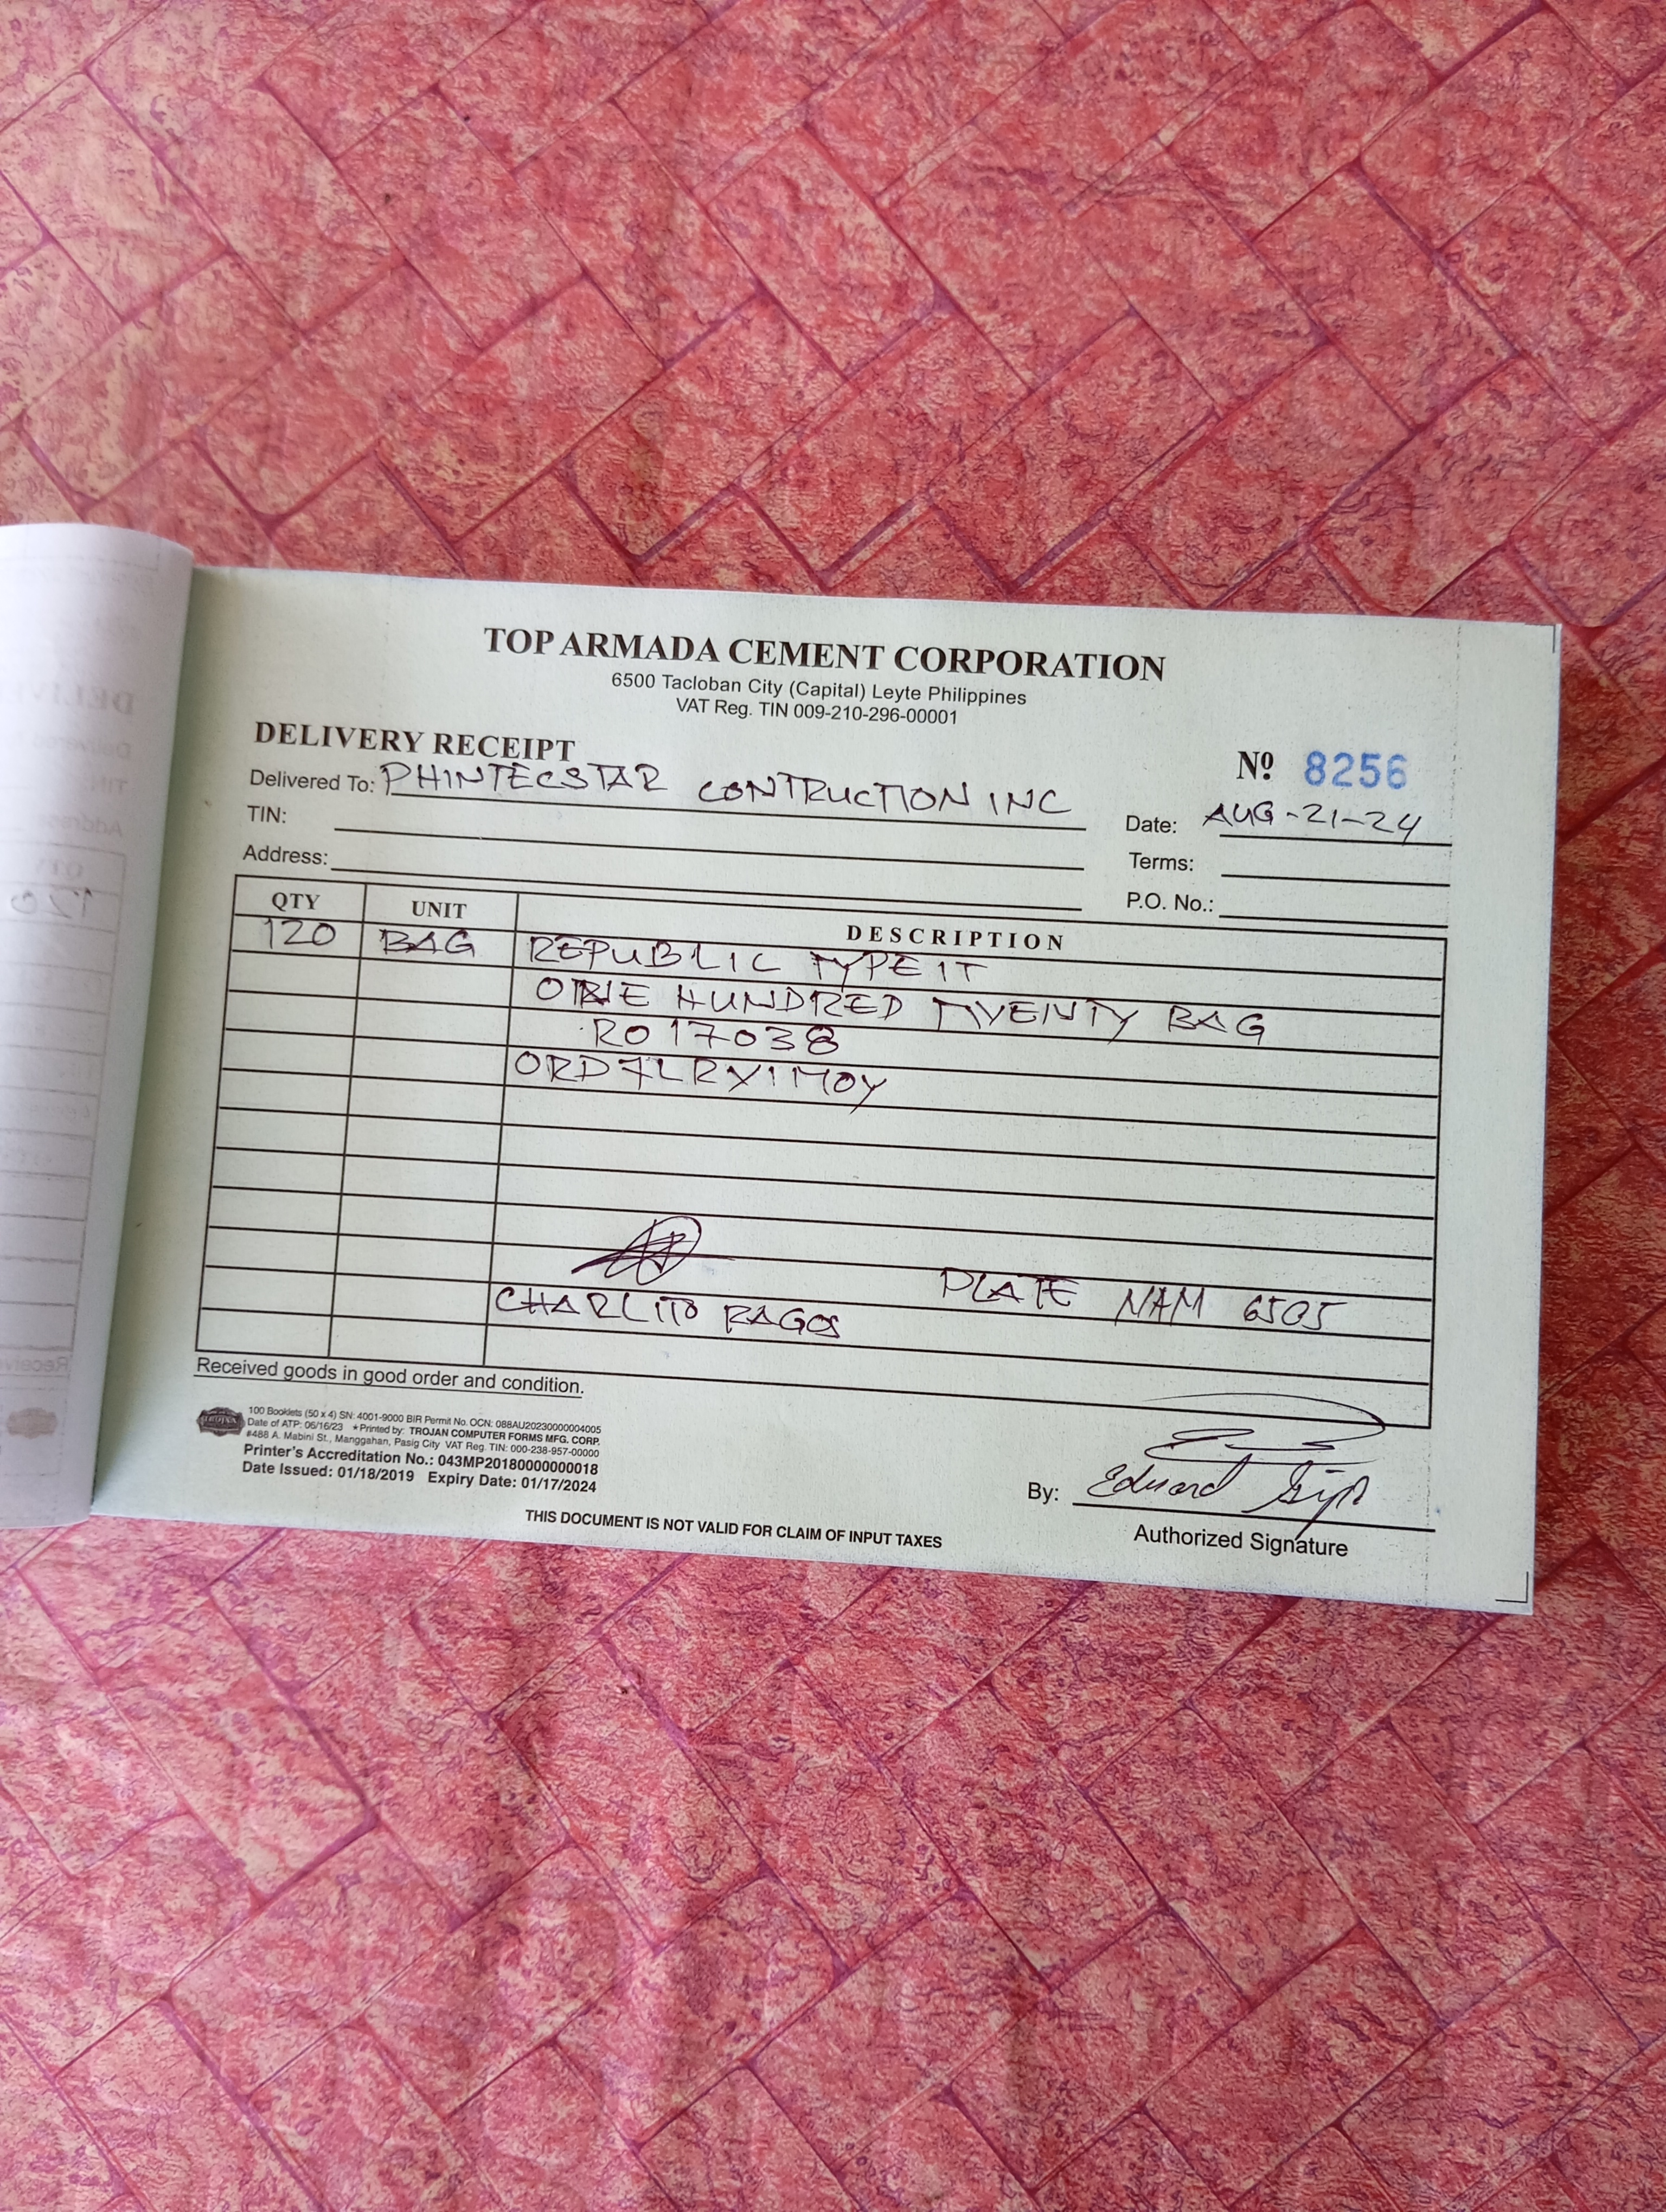 TOP ARMADA CEMENT CORPORATION
6500 Tacloban City (Capital) Leyte Philippines
VAT Reg. TIN 009-210-296-00001
DELIVERY RECEIPT
Nº 8256
Delivered To: PHINTECSTAR CONTRUCTION INC
Date: AUG-21-24
TIN:
Terms:
Address:
P.O. No.:
QTY UNIT DESCRIPTION
120 BAG REPUBLIC TYPE 1T
ONE HUNDRED TWENTY BAG
RO 17038
ORD7LRYIMOY
PLATE NAM 6505
CHARLITO RAGOS
Received goods in good order and condition.
100 Booklets (50 x 4) SN: 4001-9000 BIR Permit No. OCN: 088AU20230000004005
Date of ATP: 06/16/23 ★Printed by: TROJAN COMPUTER FORMS MFG. CORP.
#488 A. Mabini St., Manggahan, Pasig City VAT Reg. TIN: 000-238-957-00000
Printer's Accreditation No.: 043MP20180000000018
Date Issued: 01/18/2019 Expiry Date: 01/17/2024
By: Eduard
Authorized Signature
THIS DOCUMENT IS NOT VALID FOR CLAIM OF INPUT TAXES